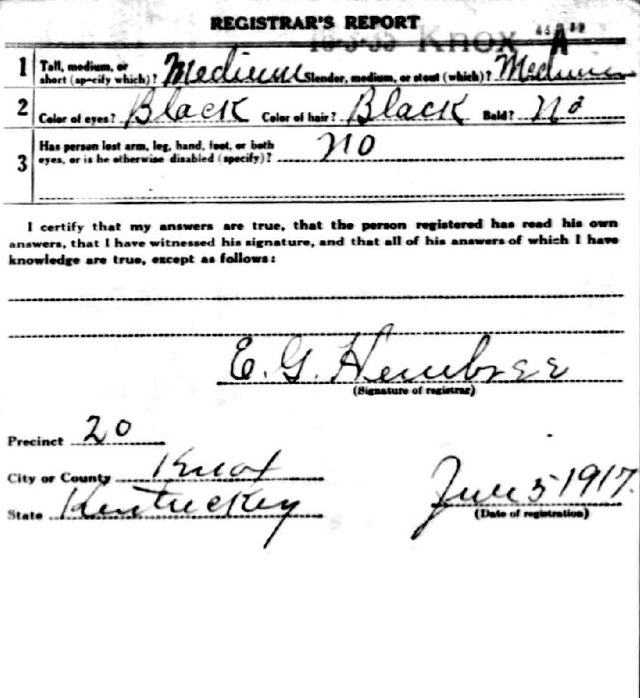 REGISTRAR'S REPORT
Knox A
1 Tall, medium, or short (specify which)? Medium Slender, medium, or stout (which)? Medium
2 Color of eyes? Black Color of hair? Black Bald? No
3 Has person lost arm, leg, hand, foot, or both
eyes, or is he otherwise disabled (specify)? no
I certify that my answers are true, that the person registered has read his own
answers, that I have witnessed his signature, and that all of his answers of which I have
knowledge are true, except as follows:
E. G. Hembree
(Signature of registrar)
Precinct 20
City or County Knox
State Kentuckey
June 5 1917.
(Date of registration)